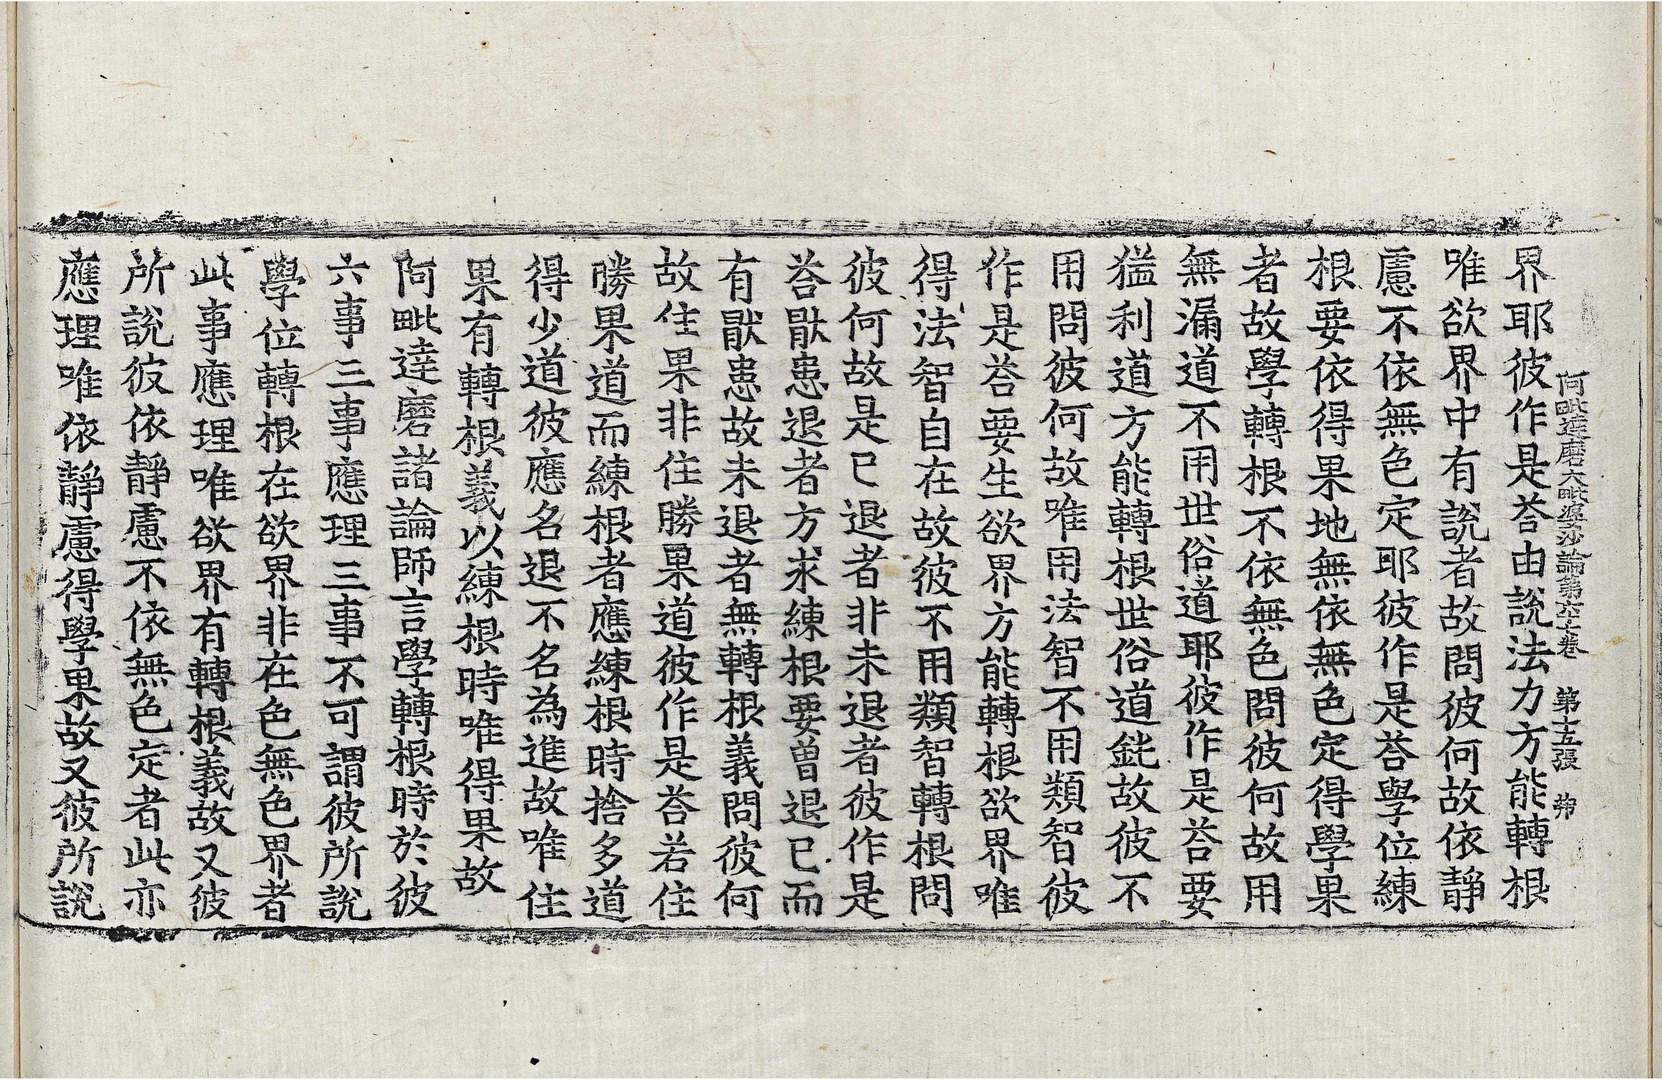 阿毗達磨大毗婆沙論第六十七卷 第十五張 弟
界耶彼作是荅由說法力方能轉根
唯欲界中有說者故問彼何故依靜
慮不依無色定耶彼作是荅學位練
根要依得果地無依無色定得學果
者故學轉根不依無色問彼何故用
無漏道不用世俗道耶彼作是荅要
猛利道方能轉根世俗道鈍故彼不
用問彼何故唯用法智不用類智彼
作是荅要生欲界方能轉根欲界唯
得法智自在故彼不用類智轉根問
彼何故是已退者非未退者彼作是
荅猒患退者方求練根要曾退已而
有猒患故未退者無轉根義問彼何
故住果非住勝果道彼作是荅若住
勝果道而練根者應練根時捨多道
得少道彼應名退不名為進故唯住
果有轉根義以練根時唯得果故
阿毗達磨諸論師言學轉根時於彼
六事三事應理三事不可謂彼所說
學位轉根在欲界非在色無色界者
此事應理唯欲界有轉根義故又彼
所說彼依靜慮不依無色定者此亦
應理唯依靜慮得學果故又彼所說